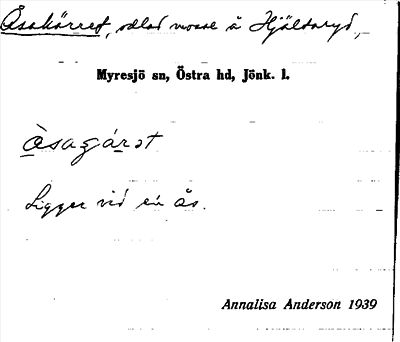 Åsakärret, odlad mosse å Hjältaryd,
Myresjö sn, Östra hd, Jönk. l.
åsagárət
Ligger vid en ås.
Annalisa Anderson 1939